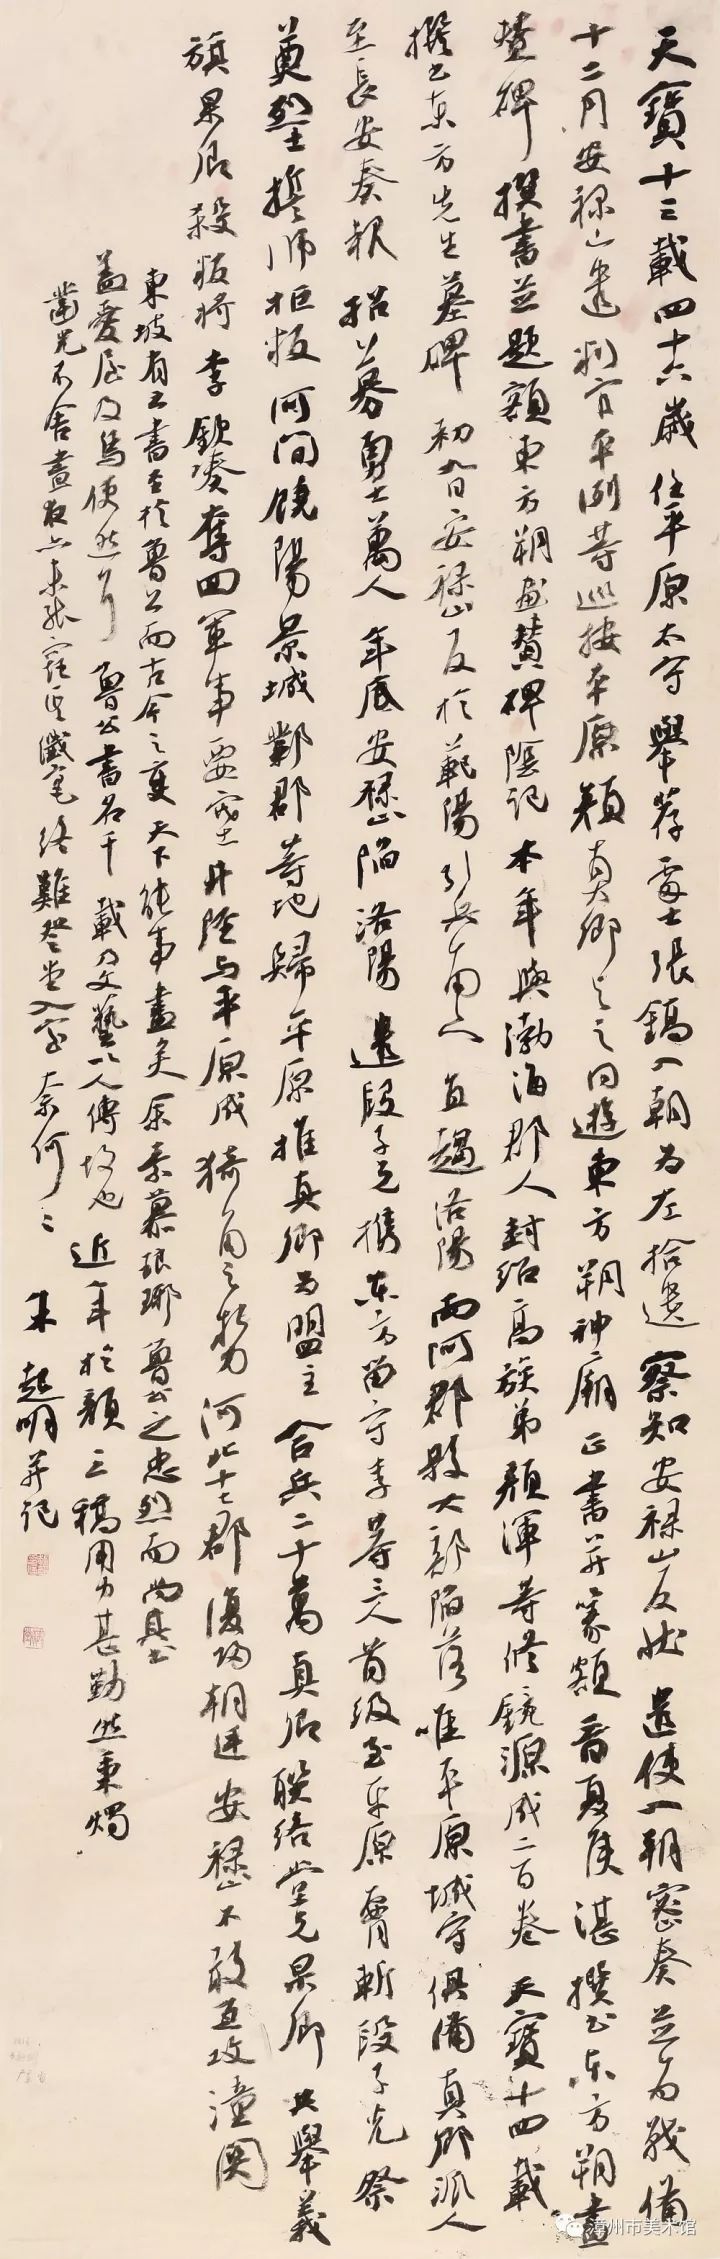 天寶十三載四十六歲任平原太守舉荐處士張鎬入朝為左拾遺察知安祿山反狀遣使入朝密奏並為戰備
十二月安祿山遣判官平冽等巡按平原顏真卿与之同遊東方朔神廟正書并篆額晉夏侯湛撰書東方朔畫
贊碑撰書並題額東方朔畫贊碑陰記本年與渤海郡人封紹高族弟顏渾等修鏡源成二百卷天寶十四載
撰書東方先生墓碑初九日安祿山反於範陽引兵南下直趨洛陽兩河郡縣大部陷落唯平原城守俱備真卿派人
至長安奏報招募勇士萬人年底安祿山陷洛陽遣段子光攜東方留守李等三人首級至平原脅斬段子光祭
奠烈士誓師拒叛河間饒陽景城鄴郡等地歸平原推真卿為盟主合兵二十萬真卿聯絡堂兄杲卿共舉義
旗杲卿殺叛將李欽湊奪回軍事要塞井陘与平原成犄角之勢河北十七郡復歸朝廷安祿山不敢直攻潼關
東坡有云書至於魯公而古今之變天下能事盡矣余素慕琅琊魯公之忠烈而尚其書
蓋愛屋及烏使然耳魯公書名千載乃文藝以人傳故也近年於顏三稿用力甚勤然秉燭
鑿光不舍晝夜亦未能窺其纖毫終難登堂入室奈何奈何朱起明并記
漳州市美术馆